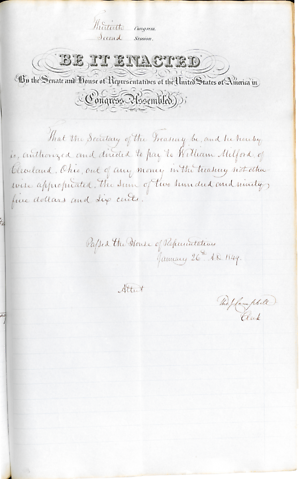 Thirtieth Congress
Second Session
BE IT ENACTED
By the Senate and House of Representatives of the United States of America in
Congress Assembled,
That the Secretary of the Treasury be, and he hereby
is, authorized and directed to pay to William Milford of
Cleveland, Ohio, out of any money in the treasury not other-
wise appropriated, the sum of two hundred and ninety
five dollars and six cents.
Passed the House of Representatives
January 26th A.D. 1849.
Attest
Tho J Campbell
Clerk